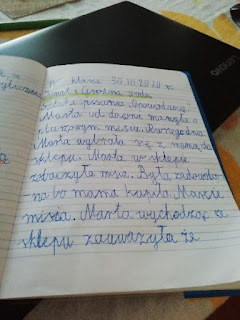 W klasie 30 III 2020 r.
Temat: Groźna
Sztuka pisania. Opowiadanie.
Marta od dawna marzyła o
pluszowym misiu. Pewnego dnia
Marta wybrała się z mamą do
sklepu. Marta w sklepie
zobaczyła misia. Była zadowolo-
na bo mama kupiła Marcie
misia. Marta wychodząc ze
sklepu zauważyła że